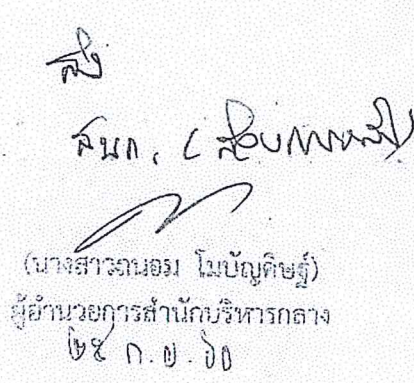 ส่ง
สนก. (
(นางสาวถนอม โมบัญดิษฐ์)
ผู้อำนวยการสำนักบริหารกลาง
๒๕ ก.ย. ๖๐